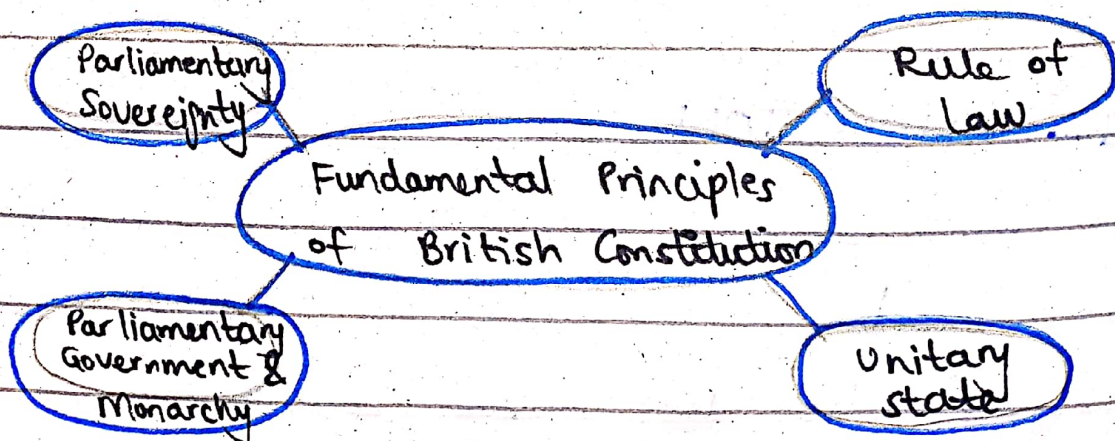 Parliamentary
Sovereignty
Rule of
Law.
Fundamental Principles
of British Constitution
Parliamentary
Government &
Monarchy
Unitary
state